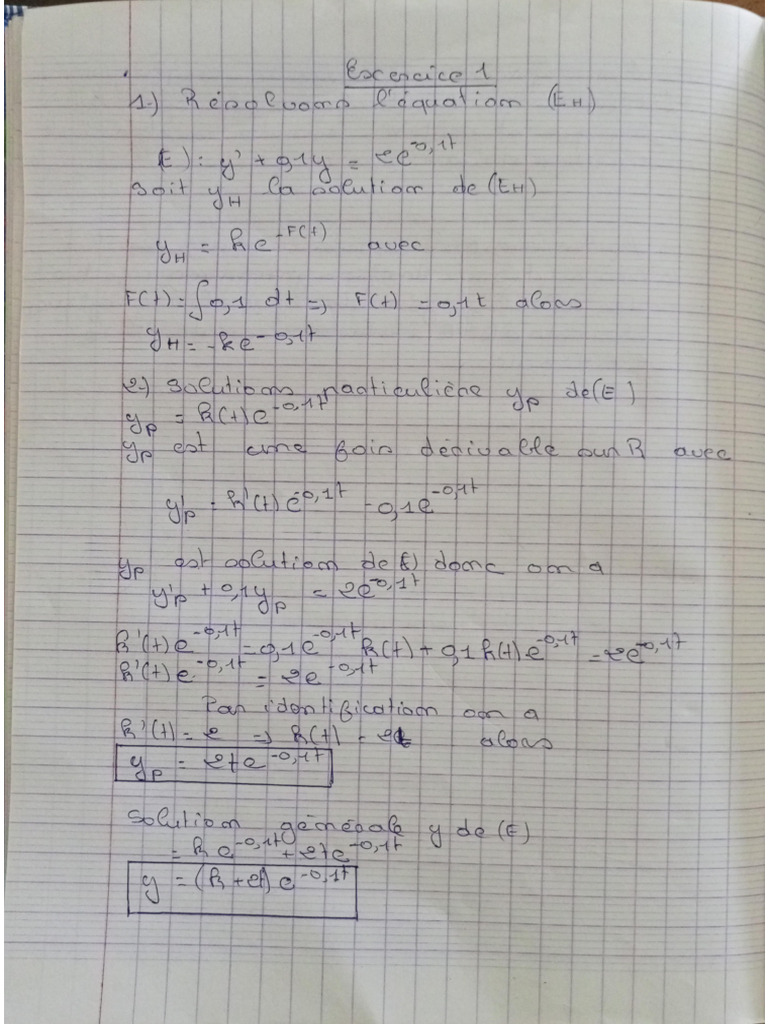 Exercice 1
1-) Résolvons l'équation (EH)
(E): y' + 0,1y = 2e^-0,1t
soit yH la solution de (EH)
yH = ke^-F(t) avec
F(t) = ∫0,1 dt => F(t) = 0,1t alors
yH = ke^-0,1t
2-) solutions particulière yp de (E)
yp = k(t)e^-0,1t
yp est une fois dérivable sur R avec
y'p = k'(t)e^-0,1t - 0,1e^-0,1t
yp est solution de (E) donc on a
y'p + 0,1yp = 2e^-0,1t
k'(t)e^-0,1t = 0,1e^-0,1t k(t) + 0,1k(t)e^-0,1t = 2e^-0,1t
k'(t)e^-0,1t = 2e^-0,1t
Par identification on a
k'(t) = 2 => k(t) = 2t alors
yp = 2te^-0,1t
Solution générale y de (E)
= ke^-0,1t + 2te^-0,1t
y = (k + 2t)e^-0,1t